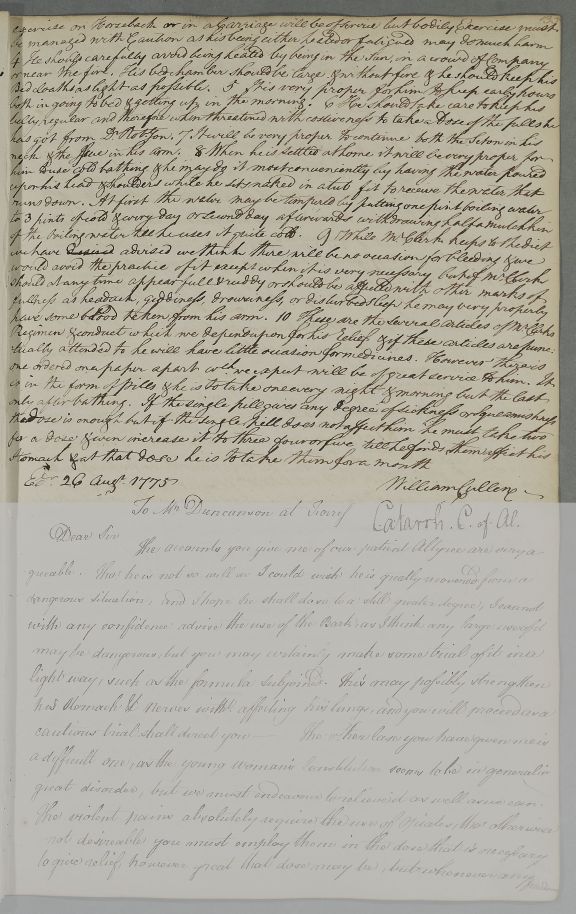 exercise on Horseback or in a Carriage will be of service but bodily Exercise must
be managed with Caution as his being either heated or fatigued may do much harm
4 He should carefully avoid being heated by being in the Sun, in a crowd of Company
or near the fire. His bed chamber should be large & without fire & he should keep his
Bed cloaths as light as possible. 5 It is very proper for him to keep early hours
both in going to bed & getting up in the morning. 6 He should take care to keep his
belly regular and therefore when threatened with costiveness to take a Dose of the pills he
has got from Dr Robson. 7. It will be very proper to continue both the Seton in his
neck & the Issue in his arm. 8 When he is settled at home it will be very proper for
him to use cold bathing & he may do it most conveniently by having the water poured
upon his head & shoulders while he sits naked in a tub fit to receive the water that
runs down. At first the water may be tempered by putting one pint boiling water
to 3 pints of cold & every day or second day afterwards withdrawing half a mutchkin
of the boiling water till he uses it quite cold. 9 While Mr Clerk keeps to the diet
we have advised we think there will be no occasion for bleeding & we
would avoid the practice of it except when it is very necessary but if Mr Clerk
should at any time appear full & ruddy or should be affected with other marks of
fullness as headach, giddiness, drowsiness, or disturbed sleep he may very properly
have some blood taken from his arm. 10 These are the several articles of Mr Clerks
Regimen & conduct which we depend upon for his relief & if these articles are punc-
tually attended to he will have little occasion for medicines. However there is
one ordered on a paper apart wch. we expect will be of great service to him. It
is in the form of pills & he is to take one every night & morning but the last
only after bathing. If the single pill gives any degree of sickness or squeamishness
that dose is enough but if the single pill does not affect him he must take two
for a dose & even increase it to three four or five till he finds them affect his
Stomach & at that dose he is to take them for a month
Edr. 26 Augt. 1775 William Cullen
To Mr Duncanson at
Catarrh. C. of Al.
Dear Sir
The accounts you give me of our patient are very a-
greeable. Tho' he is not so well as I could wish he is greatly removed from a
dangerous situation, and I hope he shall do so to a still greater degree; I cannot
with any confidence advise the use of the Bark as I think any large use of it
may be dangerous, but you may certainly make some trial of it in a
light way, such as the formula subjoined. This may possibly strengthen
his Stomach & nerves witht. affecting his lungs, and you will proceed as a
cautious trial shall direct you — The other case you have given me is
a difficult one, as the young woman's Constitution seems to be in general in
great disorder, but we must endeavour to relieve it as well as we can.
The violent pains absolutely require the use of Opiates, tho' otherwise
not desireable you must employ them in the dose that is necessary
to give relief, however great that dose may be, but whenever any